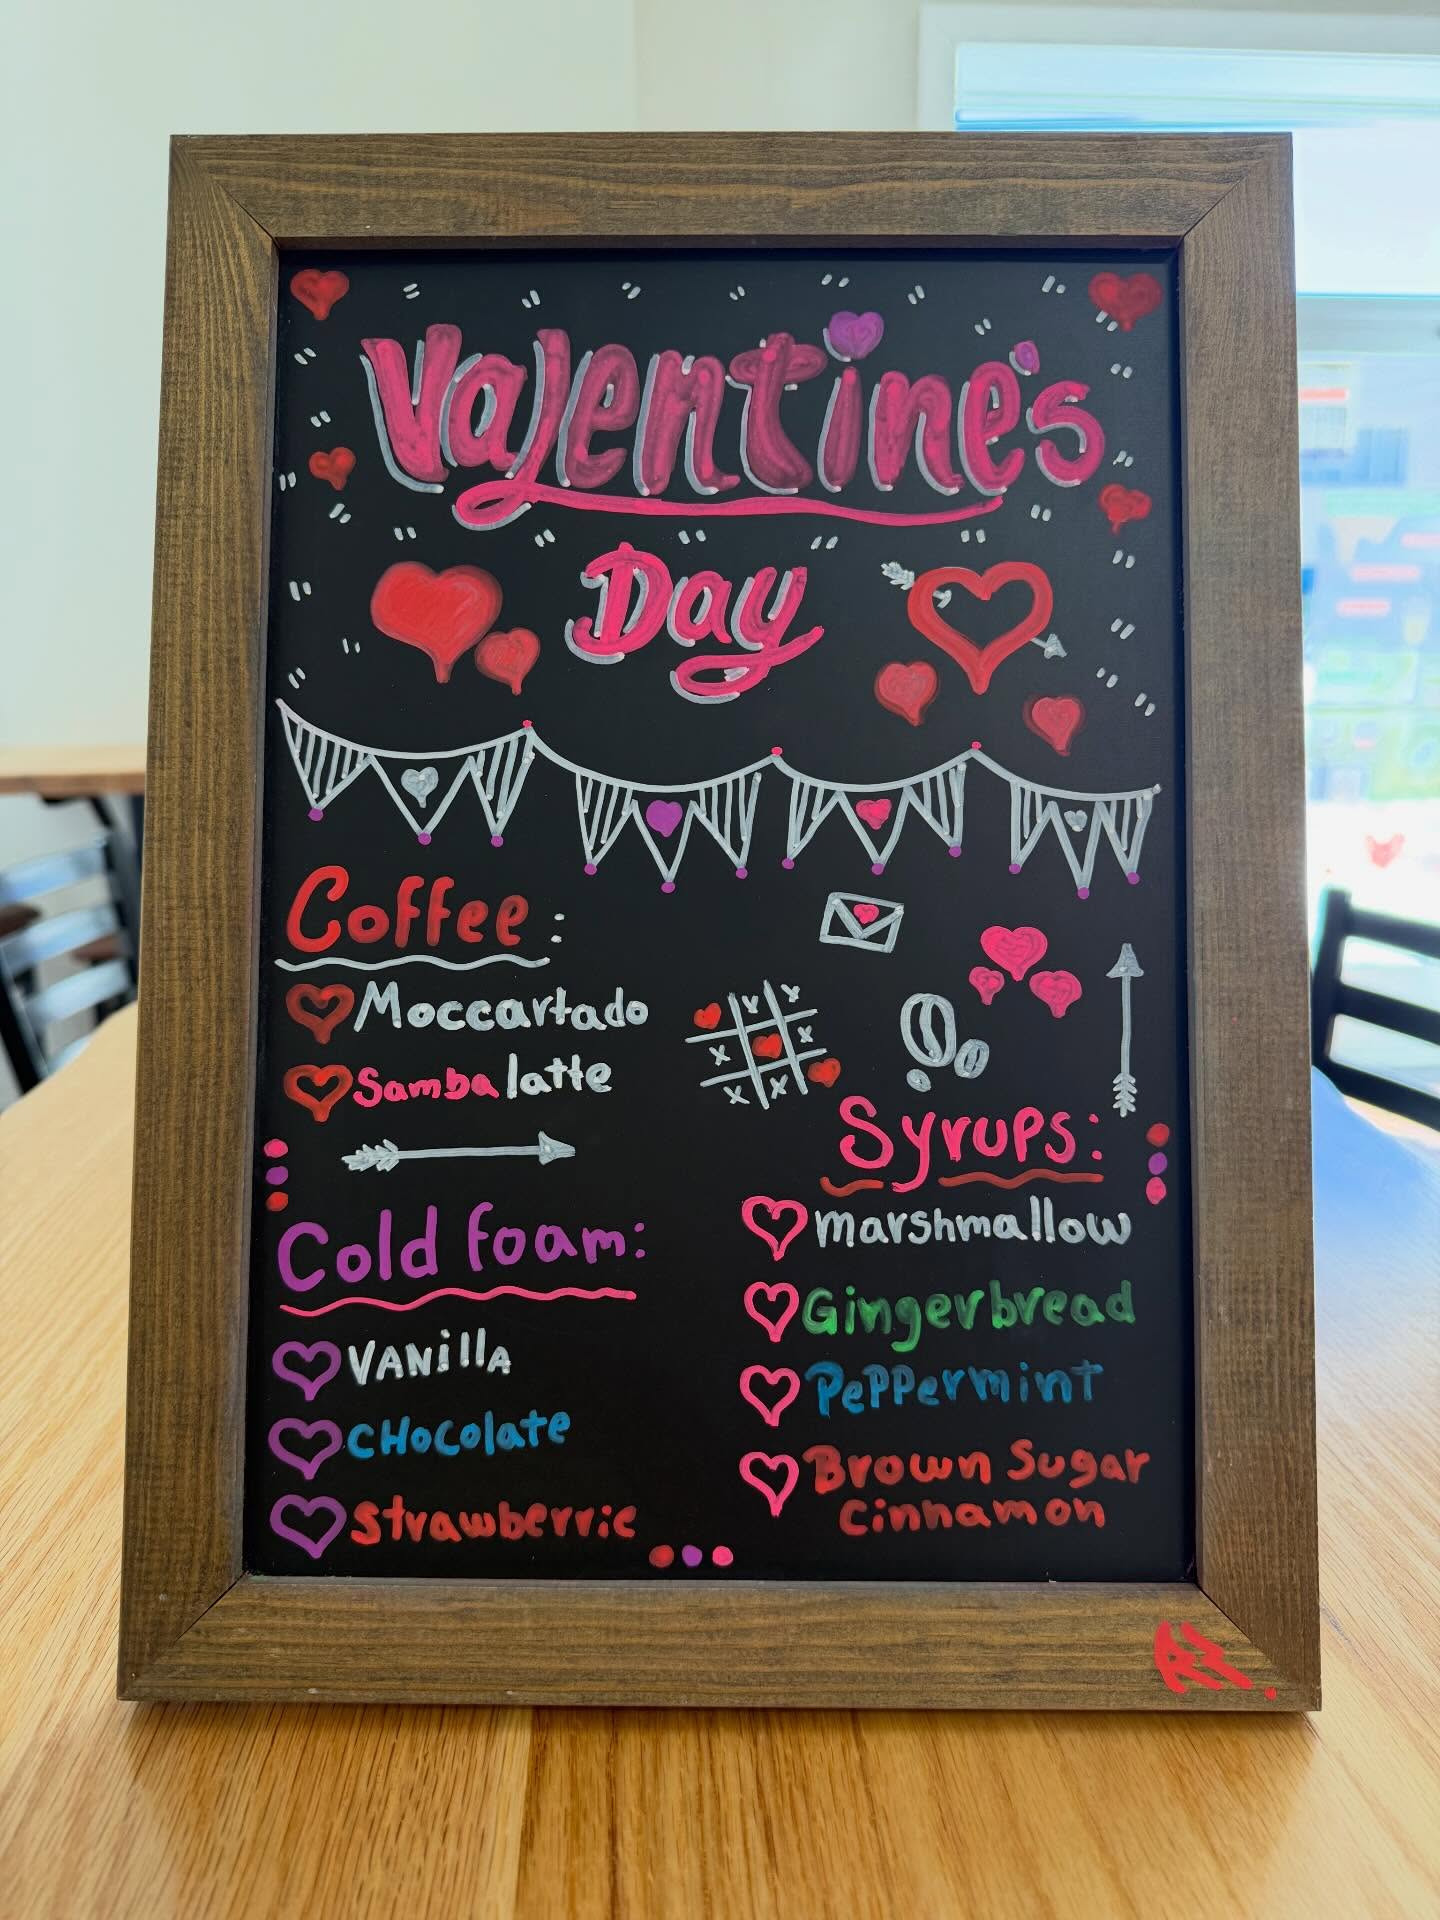 Valentine's
Day
Coffee:
Moccartado
Samba latte
Cold foam:
VANillA
CHocolate
Strawberrie
Syrups:
marshmallow
Gingerbread
PePPermint
Brown Sugar
Cinnamon